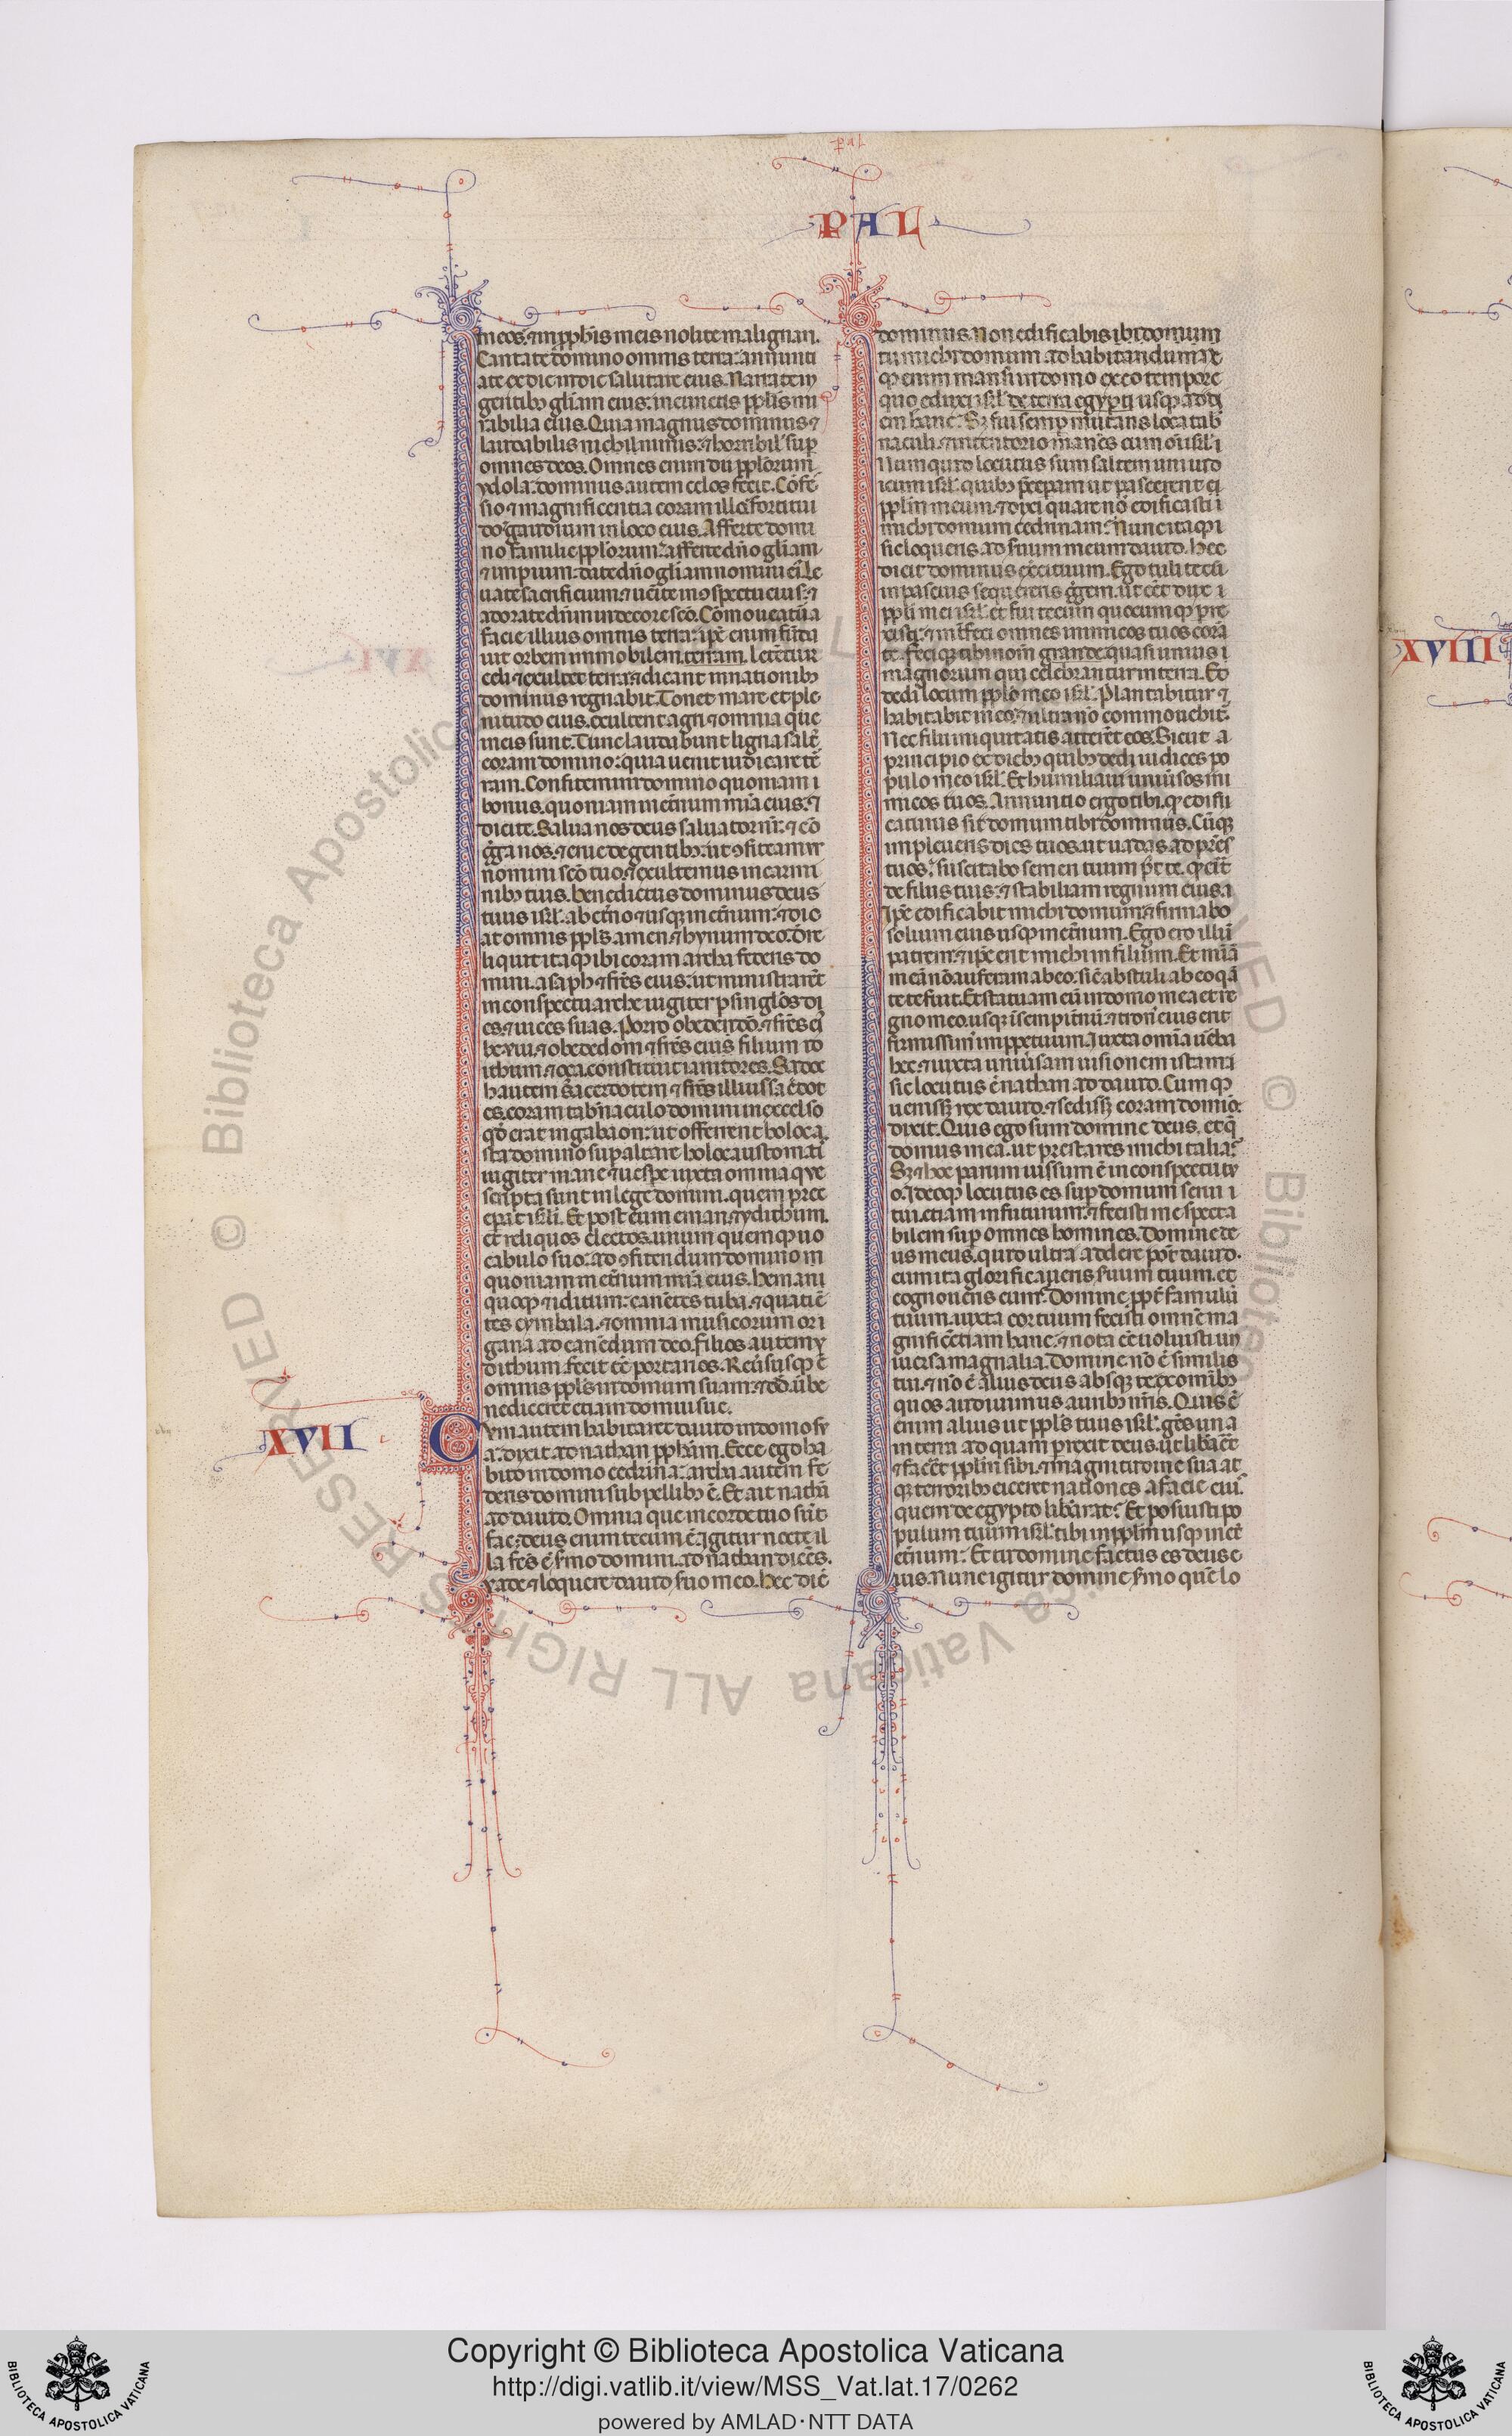 pal
PAL
meos. ⁊ in ꝓph̄is meis nolite malignari.
Cantate domino omnis terra: annunti
ate ex die in diē salutare eius. Narrate in
gentibꝫ gl̄iam eius: in cunctis ppl̄is mi
rabilia eius. Quia magnus dominus ⁊
laudabilis nichil minus: ⁊ horribil̓ suꝑ
omnes deos. Omnes enim dii ppl̓orum
ydola: dominus autem celos fecit. Cōfes
sio ⁊ magnificentia coram illo: fortitu
do ⁊ gaudium in loco eius. Afferte domi
no familie ppl̓orum: afferte dn̄o gl̄iam
⁊ impium: date dn̄o gl̄iam nomini ei᷒. Le
uate sacrificium: ⁊ uēite in ꝯspectu eius: ⁊
adorate dn̄m in decore sc̄o. Cōmoueatur a
facie illius omnis terra: ip̄e enim fūda
uit orbem immobilem terram. letētur
celi ⁊ exultet terra: ⁊ dicant in nationibꝫ
dominus regnabit. Tonet mare et ple
nitudo eius. exultent agri ⁊ omnia que
in eis sunt. Tunc laudabunt ligna salt᷒
coram domino: quia uenit iudicare ter
ram. Confitemini domino quoniam
bonus. quoniam in et̓num mīa eius: ⁊
dicite. Salua nos deus saluator nr̄: ⁊ cō
g̓ga nos. ⁊ erue de gentibꝫ: ut ꝯfiteamur
nomini sc̄o tuo. ⁊ exultemus in carmi
nibꝫ tuis. benedictus dominus deus
tuus isr̄l. ab et̓no ⁊ usqꝫ in et̓num: ⁊ dic
at omnis ppl̓s amen. ⁊ hymnum deo. Dere
liquit itaqꝫ ibi coram archa federis do
mini. asaph ⁊ fr̄es eius: ut ministrarēt
in conspectu arche iugiter ꝑ singl̓os di
es. ⁊ uices suas. Porro obededō. ⁊ fr̄es ei᷒
lxviii. ⁊ obededom ⁊ fr̄es eius filium id
ithum. ⁊ oza. constituit ianitores. Sadoc
h autem sacerdotem ⁊ fr̄es illius sac̓dot
es. coram tab̓naculo domini in excelso
qd̓ erat in gabaon: ut offerrent holoca
sta domino suꝑ altare holocaustomati
iugiter mane ⁊ uesꝑe iuxta omnia que
scripta sunt in lege domini. quem prec
epit isr̄li. Et post eum eman. ⁊ ydithum.
et reliquos electos. unum quemqꝫ uo
cabulo suo: ad ꝯfitendum domino
quoniam in et̓num mīa eius. heman
quoqꝫ ⁊ iditum: canētes tuba. ⁊ quatiē
tes cymbala. ⁊ omnia musicorum or
gana ad canēdum deo. filios autem y
dithum. fecit ēē portarios. Reu̓susqꝫ ē
omnis ppl̓s in domum suam: ⁊ dd̓. ut be
nediceret etiam domui sue.
XVII
Cum autem habitaret dauid in domo su
a: dixit ad nathan ꝓph̄am. Ecce ego ha
bito in domo cedrina: archa autem fe
deris domini sub pellibꝫ ē. Et ait nathā
ad dauid. Omnia que in corde tuo sūt
fac: deus enim tecum ē. Igitur nocte il
la f̄cs ē s̓mo domini. ad nathan dicēs.
Vade ⁊ loquere dauid s̓uo meo. hec dic̄
dominus. Non edificabis ibi domum
tu michi domum ad habitandum. ne
qꝫ enim mansi in domo ex eo tempore
quo eduxi isr̄l de terra egypti usqꝫ ad di
em hanc: Sꝫ fui semꝑ mutans loca tab
naculi: ⁊ in tentorio manēs cum oī isr̄l
Numquid locutus sum saltem uni iud
icum isr̄l. quibꝫ p̄cepam ut pascerent
ppl̓m meum. ⁊ dixi quare nō edificasti
michi domum cedrinam: Nunc itaqꝫ
sic loqueris ad s̓uum meum dauid. Hec
dicit dominus exercituum. Ego tuli te cū
in pascuis sequereris g̓gem. ut ēēs dux
ppl̓i mei isr̄l. et fui tecum quocumqꝫ pre
xisti: ⁊ int̓feci omnes inimicos tuos corā
te. feciqꝫ tibi nom̄ grande quasi unius
magnorum qui celebrantur in terra. Et
dedi locum ppl̓o meo isr̄l. Plantabitur ⁊
habitabit in eo: ⁊ ultra nō commouebit᷒.
Nec filii iniquitatis atterēt eos. Sicut a
principio ex diebꝫ quibꝫ dedi iudices po
pulo meo isr̄l. Et humiliaui uniu̓sos ini
micos tuos. Annuntio ergo tibi. qꝫ edifi
caturus sit domum tibi dominus. Cūqꝫ
impleueris dies tuos. ut uadas ad pr̄es
tuos: suscitabo semen tuum p᷒t te. qꝫ erit
de filiis tuis: ⁊ stabiliam regnum eius.
Ipe edificabit michi domum: ⁊ firmabo
solium eius usqꝫ in et̓num. Ego ero illi
patrem: ⁊ ip̄e erit michi in filium. Et mīam
meā nō auferam ab eo: sic̄ abstuli ab eo q̄ an
te te fuit. Et statuam eū in domo mea et re
gno meo. usqꝫ ī sempit̓nū: ⁊ tron᷒ eius erit
firmissim᷒ in ꝑpetuum. Iuxta omīa u̓ba
hec. ⁊ iuxta uniu̓sam uisionem istam
sic locutus ē nathan ad dauid. Cum qꝫ
uenissꝫ rex dauid. ⁊ sedissꝫ coram domīo:
dixit. Quis ego sum domine deus. et q̄
domus mea. ut prestares michi talia:
Sꝫ ⁊ hoc parum uissum ē in conspectu tu
o. Ideoqꝫ locutus es suꝑ domum serui
tui. etiam in futurum. ⁊ fecisti me specta
bilem suꝑ omnes homines. Domine de
us meus. quid ultra addere pot̓ dauid.
cum ita glorificaueris s̓uum tuum. et
cognoueris eum: Domine ꝓpt̓ famulū
tuum. iuxta cor tuum fecisti omnē ma
gnificētiam hanc: ⁊ nota ēē uoluisti un
iuersa magnalia. Domine nō ē similis
tui. ⁊ nō ē alius deus absqꝫ te. ex omībꝫ
quos audiuimus auribꝫ nr̄is. Quis ē
enim alius ut ppl̓s tuus isr̄l. gēs una
in terra ad quam ꝑrexit deus. ut lib̓aret
⁊ fac̓et ppl̓m sibi. ⁊ magnitudine sua at
qꝫ terroribꝫ eiceret nationes a facie ei᷒.
quem de egypto lib̓arat: Et posuisti po
pulum tuum isr̄l tibi in ppl̓m usqꝫ in et
et̓num: Et tu domine factus es deus e
ius. Nunc igitur domine s̓mo quē lo
XVIII
Copyright © Biblioteca Apostolica Vaticana
http://digi.vatlib.it/view/MSS_Vat.lat.17/0262
powered by AMLAD·NTT DATA
BIBLIOTECA APOSTOLICA VATICANA
BIBLIOTECA APOSTOLICA VATICANA